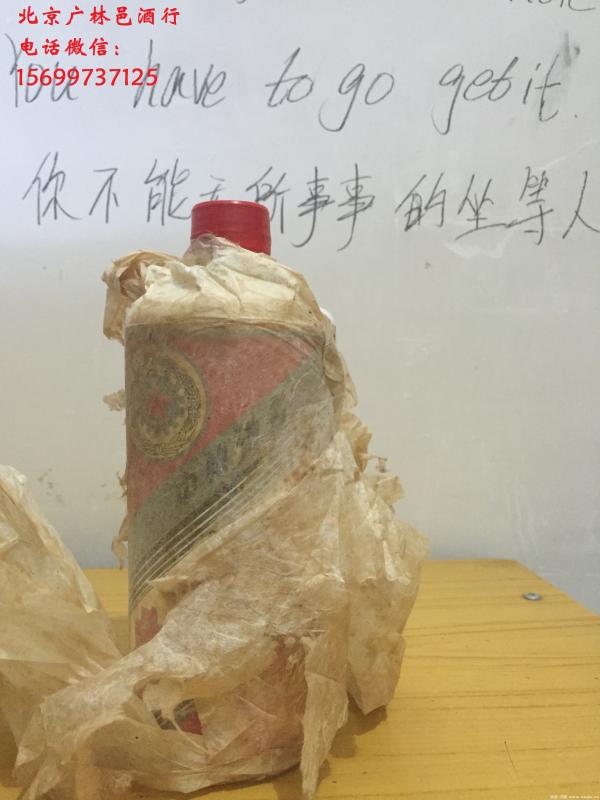 北京广林邑酒行
电话微信：
15699737125
You have to go get it.
你不能无所事事的坐等人